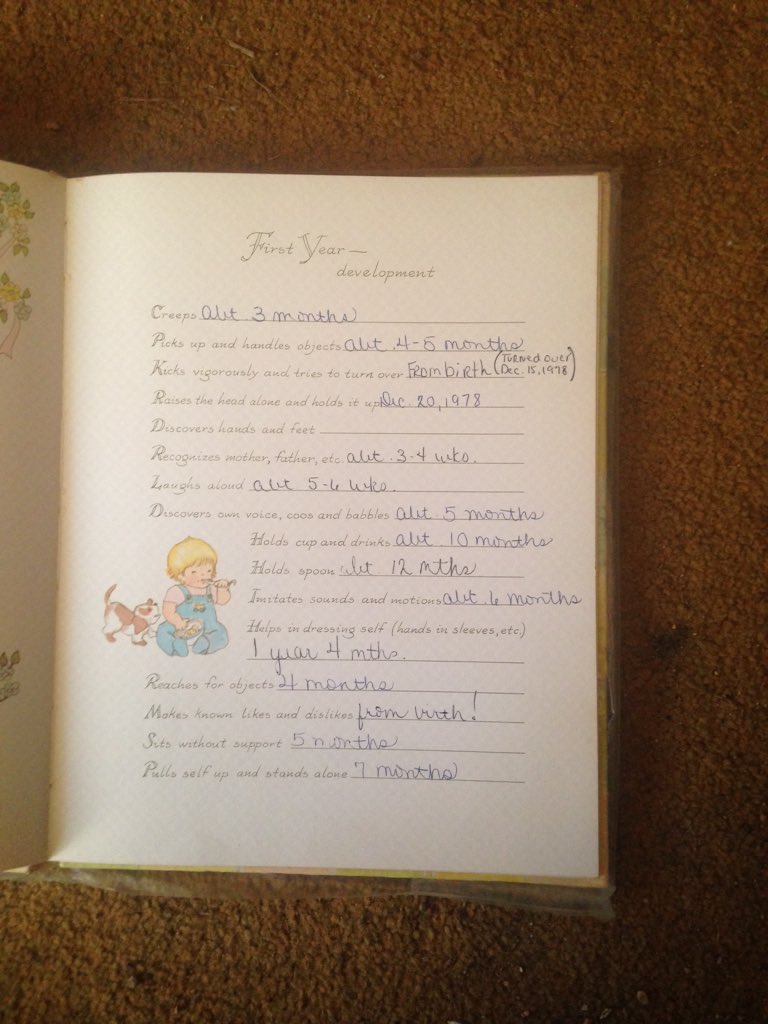 First Year—
development
Creeps abt. 3 months
Picks up and handles objects abt. 4-5 months
Kicks vigorously and tries to turn over From birth (Turned over Dec. 15, 1978)
Raises the head alone and holds it up Dec. 20, 1978
Discovers hands and feet
Recognizes mother, father, etc. abt. 3-4 wks.
Laughs aloud abt 5-6 wks.
Discovers own voice, coos and babbles abt. 5 months
Holds cup and drinks abt. 10 months
Holds spoon abt 12 mths
Imitates sounds and motions abt. 6 months
Helps in dressing self (hands in sleeves, etc.)
1 year 4 mths.
Reaches for objects 4 months
Makes known likes and dislikes from birth!
Sits without support 5 months
Pulls self up and stands alone 7 months